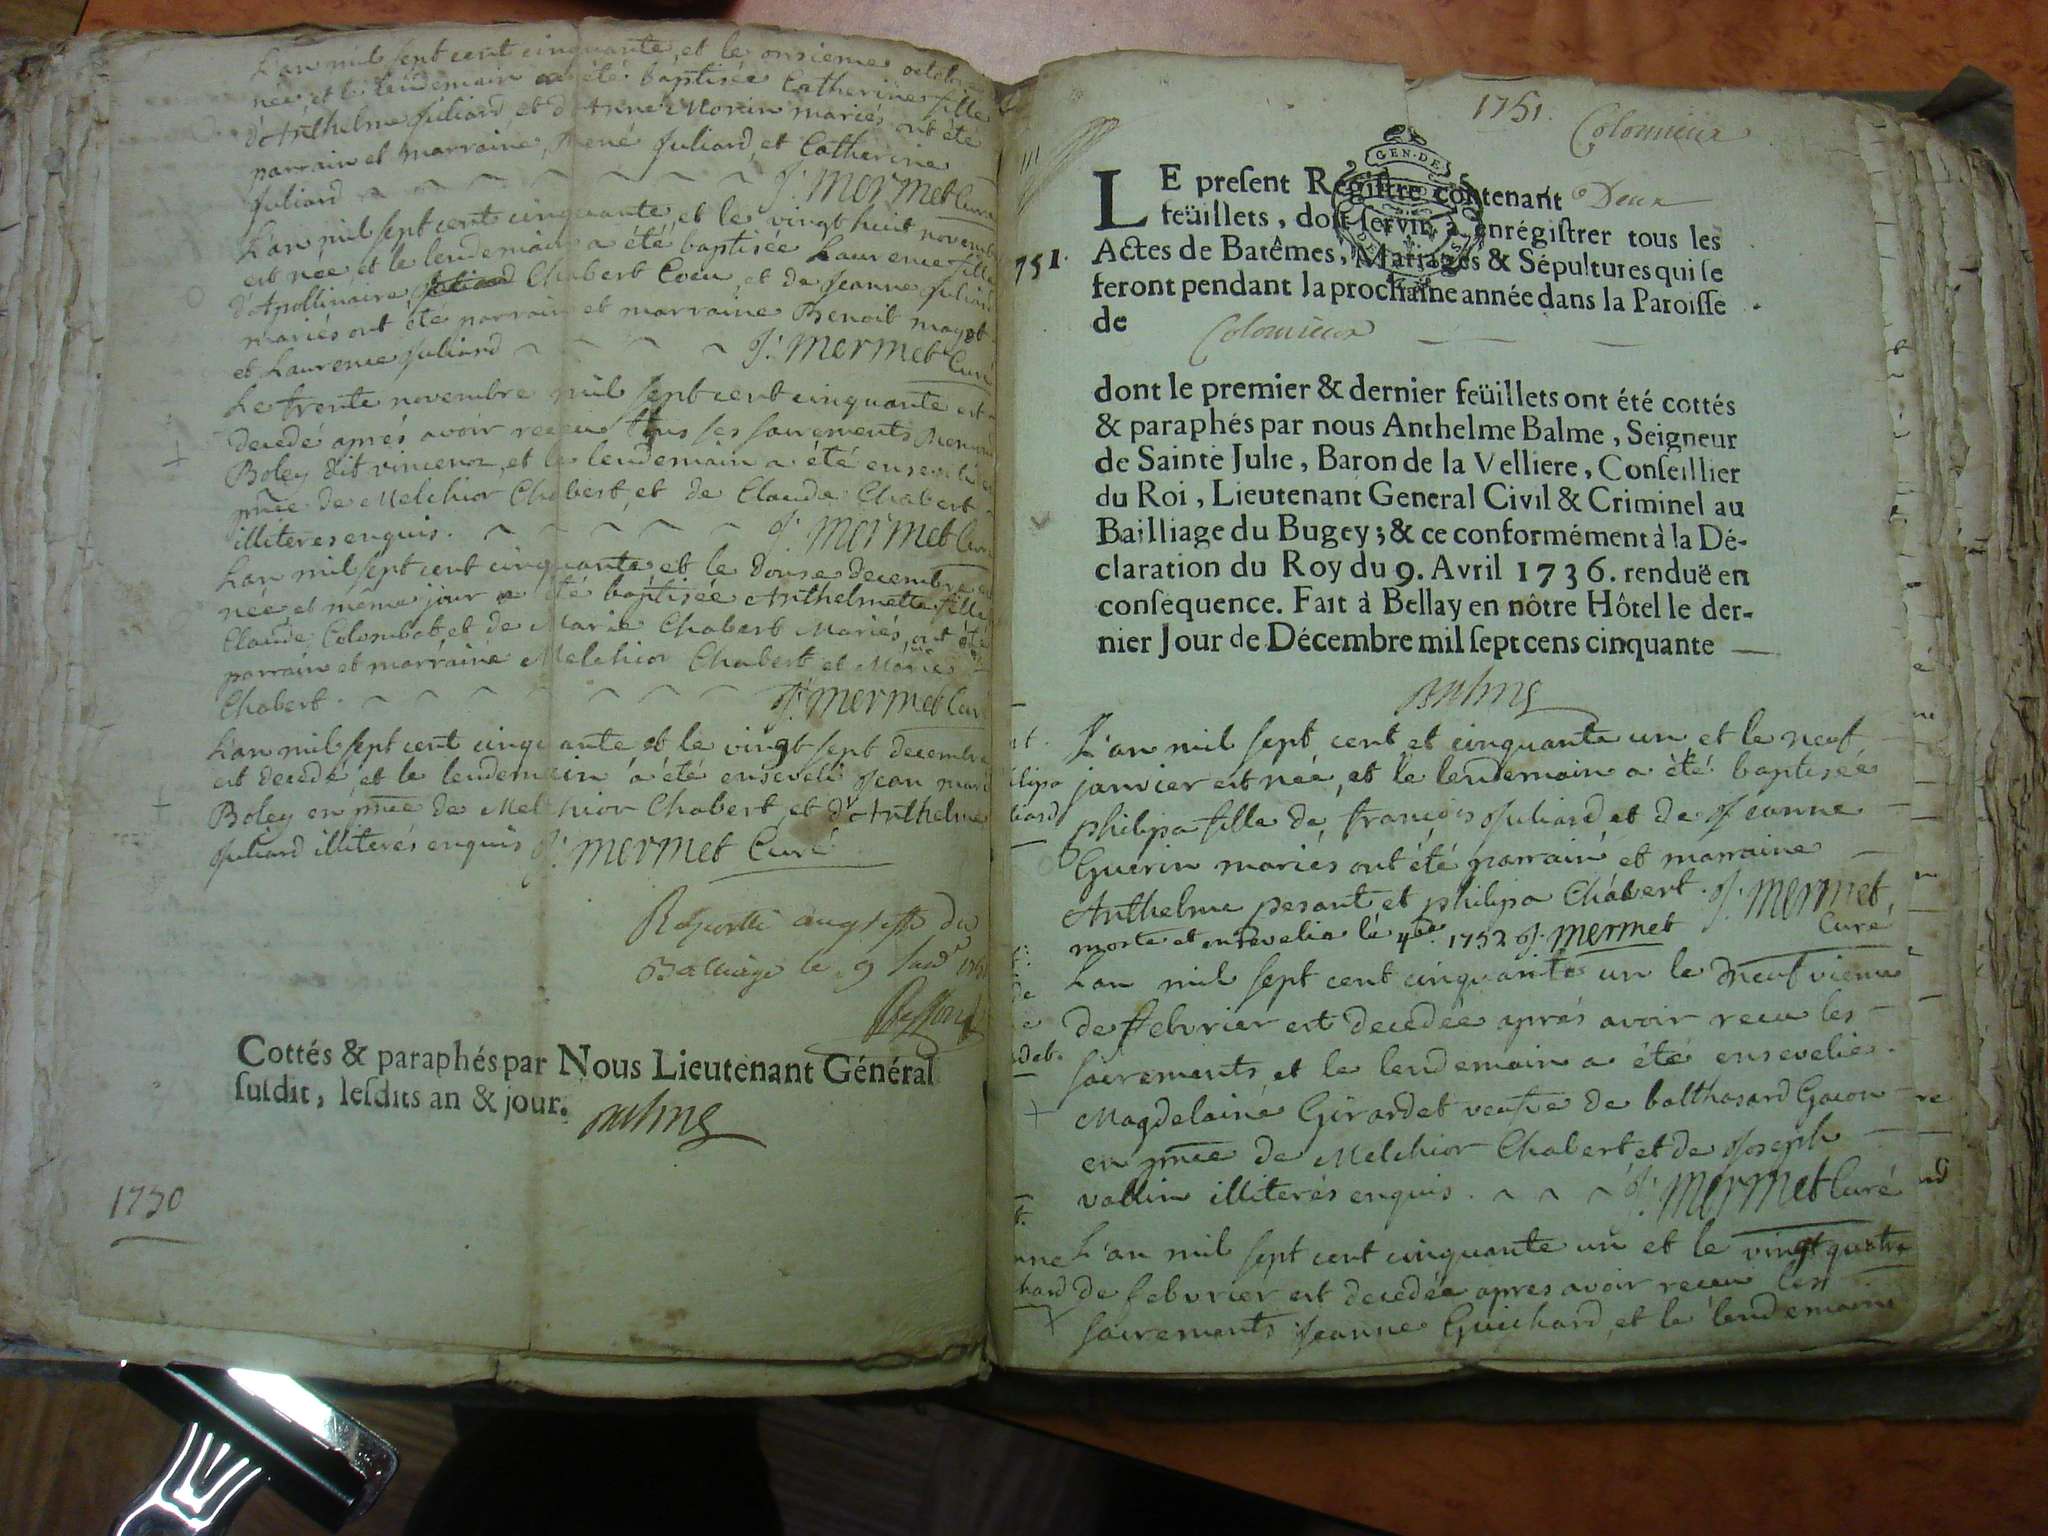 L'an mil sept cent cinquante, et le onsieme octobre
née et le lendemain a été baptisée Catherine fille
d'Anthelme Juliard, et d'Anne Morin mariés ont été
parrain et marraine, René Juliard, et Catherine
Juliard J: Mermet Curé
L'an mil sept cent cinquante, et le vingt huit novembre
est née et le lendemain a été baptisée Laurence fille
d'Apollinaire Chabert Coeu, et de Jeanne Juliard
mariés ont été parrain et marraine Benoit
et Laurence Juliard J: Mermet Curé
Le trente novembre mil sept cent cinquante est
decedé aprés avoir receu tous ses sacrements
Boley dit vincenz, et le lendemain a été enseveli
pñce de Melchior Chabert, et de Claude Chabert
illiteres enquis. J: Mermet Curé
L'an mil sept cent cinquante et le douse decembre est
née et même jour a été baptisée Anthelmette fille
Claude Colombet et de Marie Chabert Mariés, ont été
parrain et marraine Melchior Chabert et Marie
Chabert. J: Mermet Curé
L'an mil sept cent cinquante et le vingt sept decembre
est decedé, et le lendemain a été enseveli Jean
Boley en pñce de Melchior Chabert, et d'Anthelme
Juliard illiterés enquis J: Mermet Curé
du
Bailliage le 9 1751
Cottés & paraphés par Nous Lieutenant Général
susdit, lesdits an & jour. Balme
1750
1751. Colomieux
GEN. DE
751.
LE present Registre contenant Deux
feüillets, doit servir à enrégistrer tous les
Actes de Batêmes, Mariages & Sépultures qui se
feront pendant la prochaine année dans la Paroisse
de Colomieux
dont le premier & dernier feüillets ont été cottés
& paraphés par nous Anthelme Balme, Seigneur
de Sainte Julie, Baron de la Velliere, Conseillier
du Roi, Lieutenant General Civil & Criminel au
Bailliage du Bugey; & ce conformément à la Dé-
claration du Roy du 9. Avril 1736. renduë en
consequence. Fait à Bellay en nôtre Hôtel le der-
nier Jour de Décembre mil sept cens cinquante
Balme
L'an mil sept cent et cinquante un et le neuf
janvier est née, et le lendemain a été baptisée
philipa fille de françois Juliard et de Jeanne
Guerin mariés ont été parrain et marraine
Anthelme pesant et philipa Chabert. J: Mermet
morte et ensevelie le 4bre 1752 J: Mermet Curé
L'an mil sept cent cinquante un le neufvieme
de febvrier est decedée aprés avoir receu les
sacrements, et le lendemain a été ensevelie
Magdelaine Girardet veufve de balthasard Gacon
en pñce de Melchior Chabert et de Joseph
vallin illiterés enquis. J: Mermet Curé
L'an mil sept cent cinquante un et le vingt quatre
de febvrier est decedée apres avoir receu les
sacrements Jeanne Guichard, et le lendemain